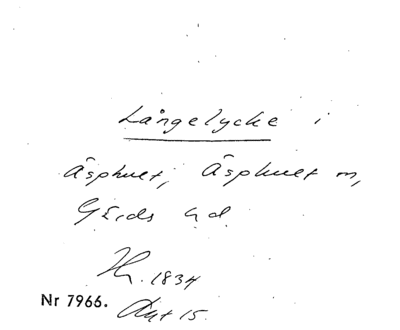 Långelycke i
Äsphult, Äsphult sn,
Gärds hd
Hr. 1834
Nr 7966. Akt 15.